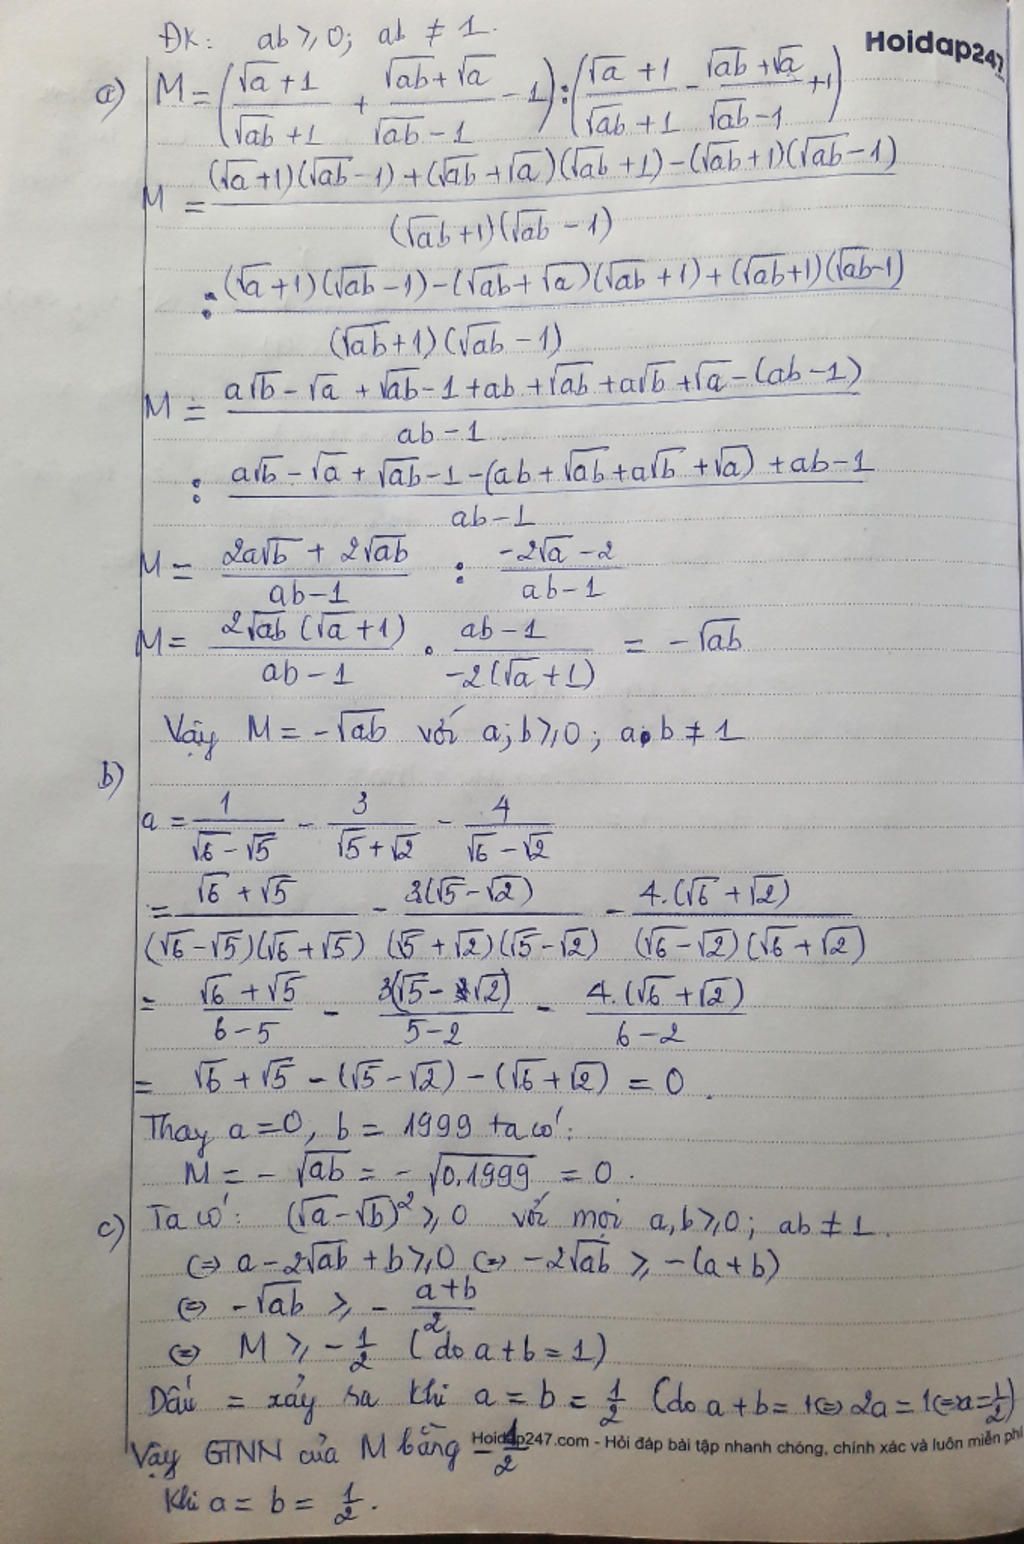 ĐK: ab ⩾ 0; ab ≠ 1.
Hoidap247
a) M = ((√a + 1)/(√ab + 1) + (√ab + √a)/(√ab - 1) - 1) : ((√a + 1)/(√ab + 1) - (√ab + √a)/(√ab - 1) + 1)
M = ((√a + 1)(√ab - 1) + (√ab + √a)(√ab + 1) - (√ab + 1)(√ab - 1))/((√ab + 1)(√ab - 1))
: ((√a + 1)(√ab - 1) - (√ab + √a)(√ab + 1) + (√ab + 1)(√ab - 1))/((√ab + 1)(√ab - 1))
M = (a√b - √a + √ab - 1 + ab + √ab + a√b + √a - (ab - 1))/(ab - 1)
: (a√b - √a + √ab - 1 - (ab + √ab + a√b + √a) + ab - 1)/(ab - 1)
M = (2a√b + 2√ab)/(ab - 1) : (-2√a - 2)/(ab - 1)
M = (2√ab (√a + 1))/(ab - 1) . (ab - 1)/(-2(√a + 1)) = -√ab
Vậy M = -√ab với a; b ⩾ 0; a.b ≠ 1
b)
a = 1/(√6 - √5) - 3/(√5 + √2) - 4/(√6 - √2)
= (√6 + √5)/((√6 - √5)(√6 + √5)) - 3(√5 - √2)/((√5 + √2)(√5 - √2)) - 4.(√6 + √2)/((√6 - √2)(√6 + √2))
= (√6 + √5)/(6 - 5) - 3(√5 - √2)/(5 - 2) - 4.(√6 + √2)/(6 - 2)
= √6 + √5 - (√5 - √2) - (√6 + √2) = 0.
Thay a = 0, b = 1999 ta có:
M = -√ab = -√0.1999 = 0.
c) Ta có: (√a - √b)² ⩾ 0 với mọi a, b ⩾ 0; ab ≠ 1.
⇔ a - 2√ab + b ⩾ 0 ⇔ -2√ab ⩾ -(a + b)
⇔ -√ab ⩾ -(a + b)/2
⇔ M ⩾ -1/2 (do a + b = 1)
Dấu = xảy ra khi a = b = 1/2 (do a + b = 1 ⇔ 2a = 1 ⇔ a = 1/2)
Vậy GTNN của M bằng -1/2
Hoidap247.com - Hỏi đáp bài tập nhanh chóng, chính xác và luôn miễn phí
Khi a = b = 1/2.